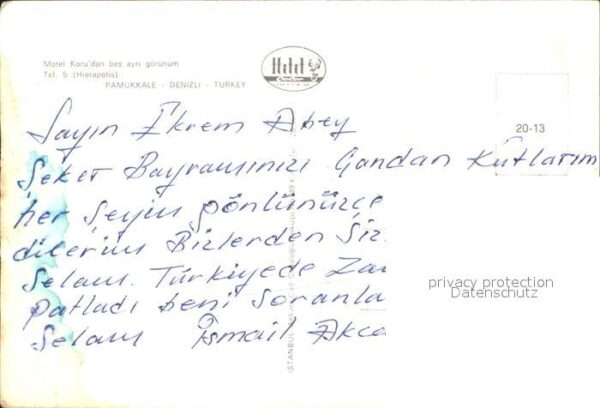 Motel Koru'dan beş ayrı görünüm
Tel. 5 (Hierapolis)
PAMUKKALE - DENİZLİ - TURKEY
Hitit
20-13
Sayın Ekrem Abey
Şeker Bayramınızı Candan Kutlarım
her şeyin gönlünüzce
dilerim Bizlerden Siz
Selam. Türkiyede Za
patladı beni soranla
Selam İsmail Akca
İSTANBUL
privacy protection
Datenschutz